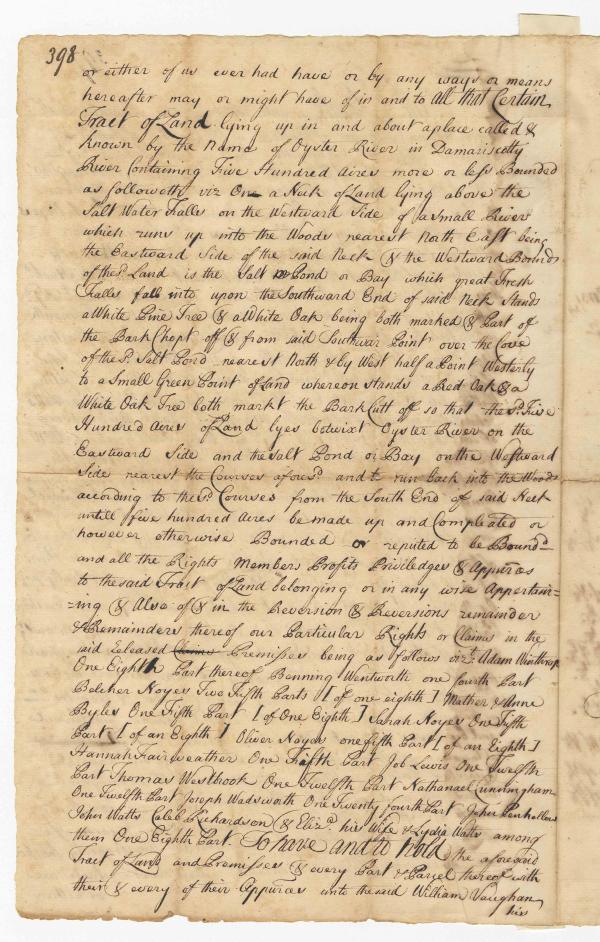 398
or either of us ever had have or by any ways or means
hereafter may or might have of in and to All that Certain
Tract of Land lying up in and about a place called &
known by the Name of Oyster River in Damariscotty
River Containing Five Hundred Acres more or less Bounded
as followeth viz One a Neck of Land lying above the
Salt Water Falls on the Westward Side of a small River
which runs up into the Woods nearest North East being
the Eastward Side of the said Neck & the Westward Bounds
of the sd. Land is the Salt Pond or Bay which great Fresh
Falls fall into upon the Southward End of said Neck Stands
a White Pine Tree & a White Oak being both marked & Part of
the Bark Chopt off & from said Southwar Point over the Cove
of the sd. Salt Pond nearest North & by West half a Point Westerly
to a Small Green Point of Land whereon stands a Red Oak & a
White Oak Tree both markt the Bark Cutt off so that the sd. Five
Hundred Acres of Land lyes betwixt Oyster River on the
Eastward Side and the Salt Pond or Bay on the Westward
Side nearest the Courses aforesd. and to run back into the Woods
according to the sd. Courses from the South End of said Neck
untill five hundred Acres be made up and Compleated or
however otherwise Bounded or reputed to be Bound
and all the Rights Members Profits Priviledges & Appurces
to the said Tract of Land belonging or in any wise Appertain=
=ing & Also of & in the Reversion & Reversions remainder
& Remainders thereof our Particular Rights or Claims in the
said Released Claims Premisses being as follows vizt. Adam Winthrop
One Eighth Part thereof Benning Wentworth one fourth Part
Belcher Noyes Two Fifth Parts [of one eighth] Mather & Anne
Byles One Fifth Part [of One Eighth] Sarah Noyes One Fifth
Part [of an Eighth] Oliver Noyes one fifth Part [of an Eighth]
Hannah Fairweather One Fifth Part Job Lewis One Twelfth
Part Thomas Westbrook One Twelfth Part Nathanael Cunningham
One Twelfth Part Joseph Wadsworth One Twenty fourth Part John Penhallow
John Watts Caleb Richardson & Eliza. his Wife & Lydia Watts among
them One Eighth Part. To have and to hold the aforesaid
Tract of Land and Premisses & every Part & Parcel thereof with
their & every of their Appurces unto the said William Vaughan
his